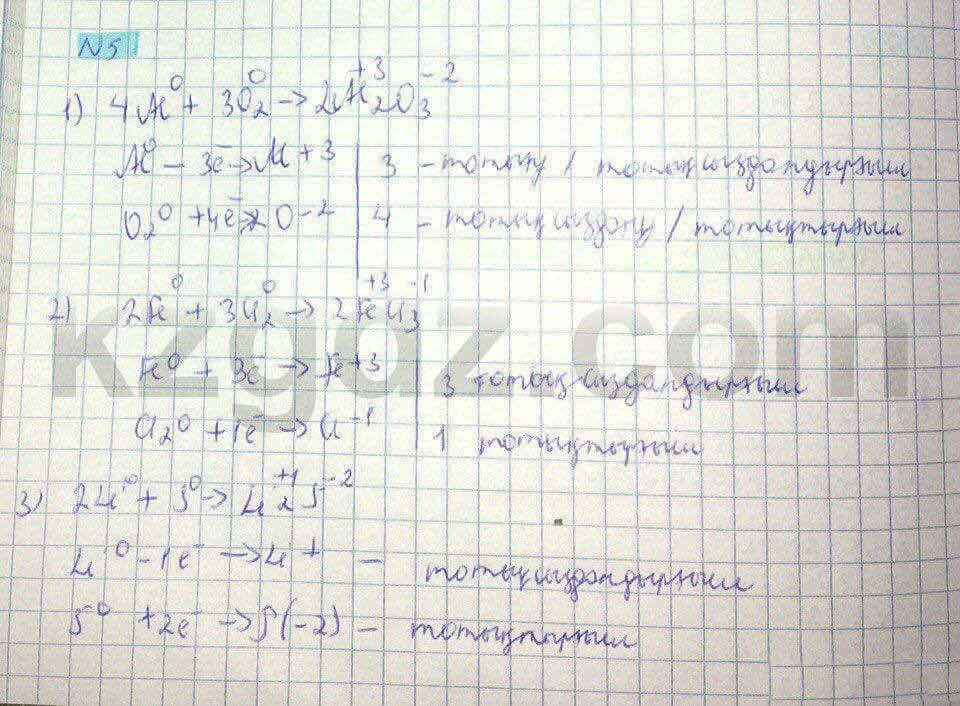 N5
1) 4Al⁰ + 3O₂⁰ → 2Al₂⁺³O₃⁻²
Al⁰ – 3e⁻ → Al+3 | 3 – тотығу / тотықсыздандырғыш
O₂⁰ +4e⁻ → 2O-2 | 4 – тотықсыздану / тотықтырғыш
2) 2Fe⁰ + 3Cl₂⁰ → 2Fe⁺³Cl₃⁻¹
Fe⁰ + 3e⁻ → Fe+3 | 3 тотықсыздандырғыш
Cl₂⁰ + 1e⁻ → Cl⁻¹ | 1 тотықтырғыш
3) 2Li⁰ + S⁰ → Li₂⁺¹S⁻²
Li⁰ - 1e⁻ → Li⁺ – тотықсыздандырғыш
S⁰ + 2e⁻ → S(-2) – тотықтырғыш
kzgdz.com